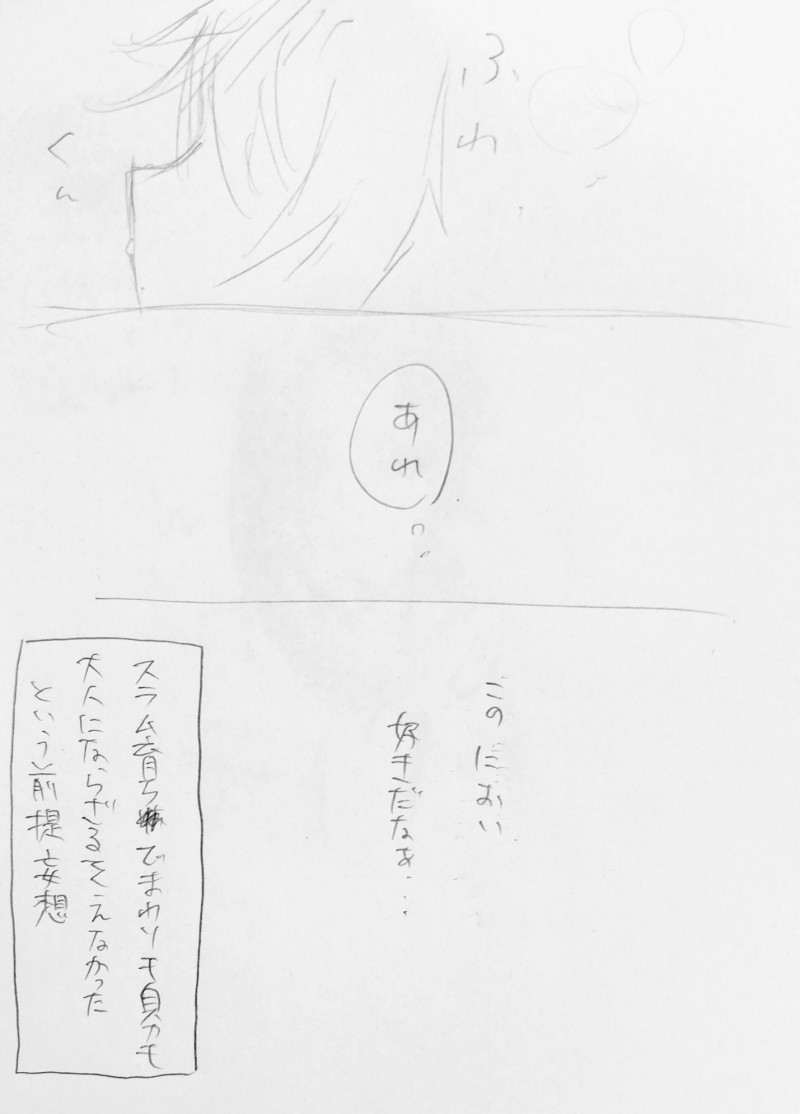 ふわ
くん
あれ?
このにおい
好きだなぁ…
スラム育ちでまわりも自分も
大人にならざるそえなかった
という前提妄想